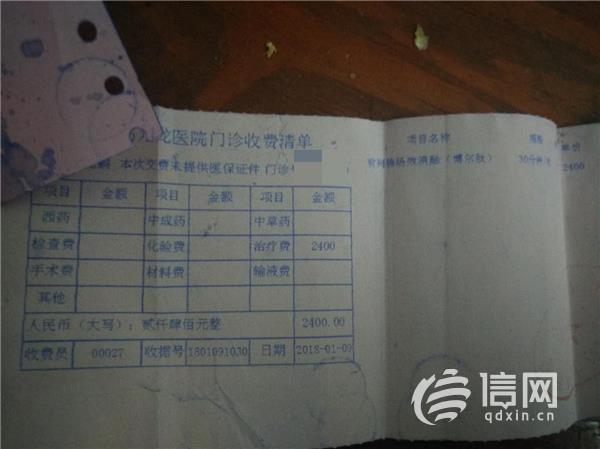 龙医院门诊收费清单
本次交费未提供医保证件 门诊
项目 金额 项目 金额 项目 金额
西药 中成药 中草药
检查费 化验费 治疗费 2400
手术费 材料费 输液费
其他
人民币（大写）：贰仟肆佰元整 2400.00
收费员 00027 收据号 1801091030 日期 2018-01-09
项目名称 单价
效消融（博尔肽） 30分钟/次 2400
信网
qdxin.cn